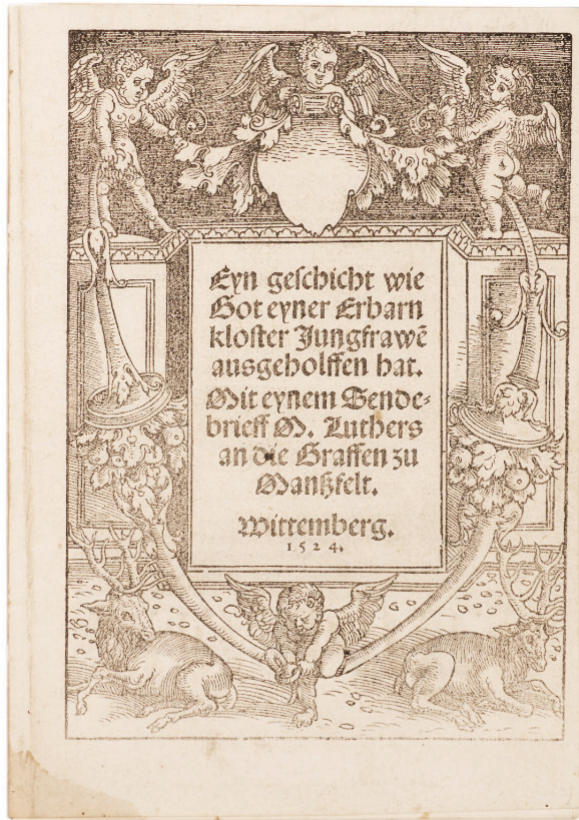 Eyn geschicht wie
Got eyner Erbarn
kloster Jungfrawẽ
ausgeholffen hat.
Mit eynem Sende-
brieff M. Luthers
an die Graffen zu
Manßfelt.
Wittemberg.
1524.